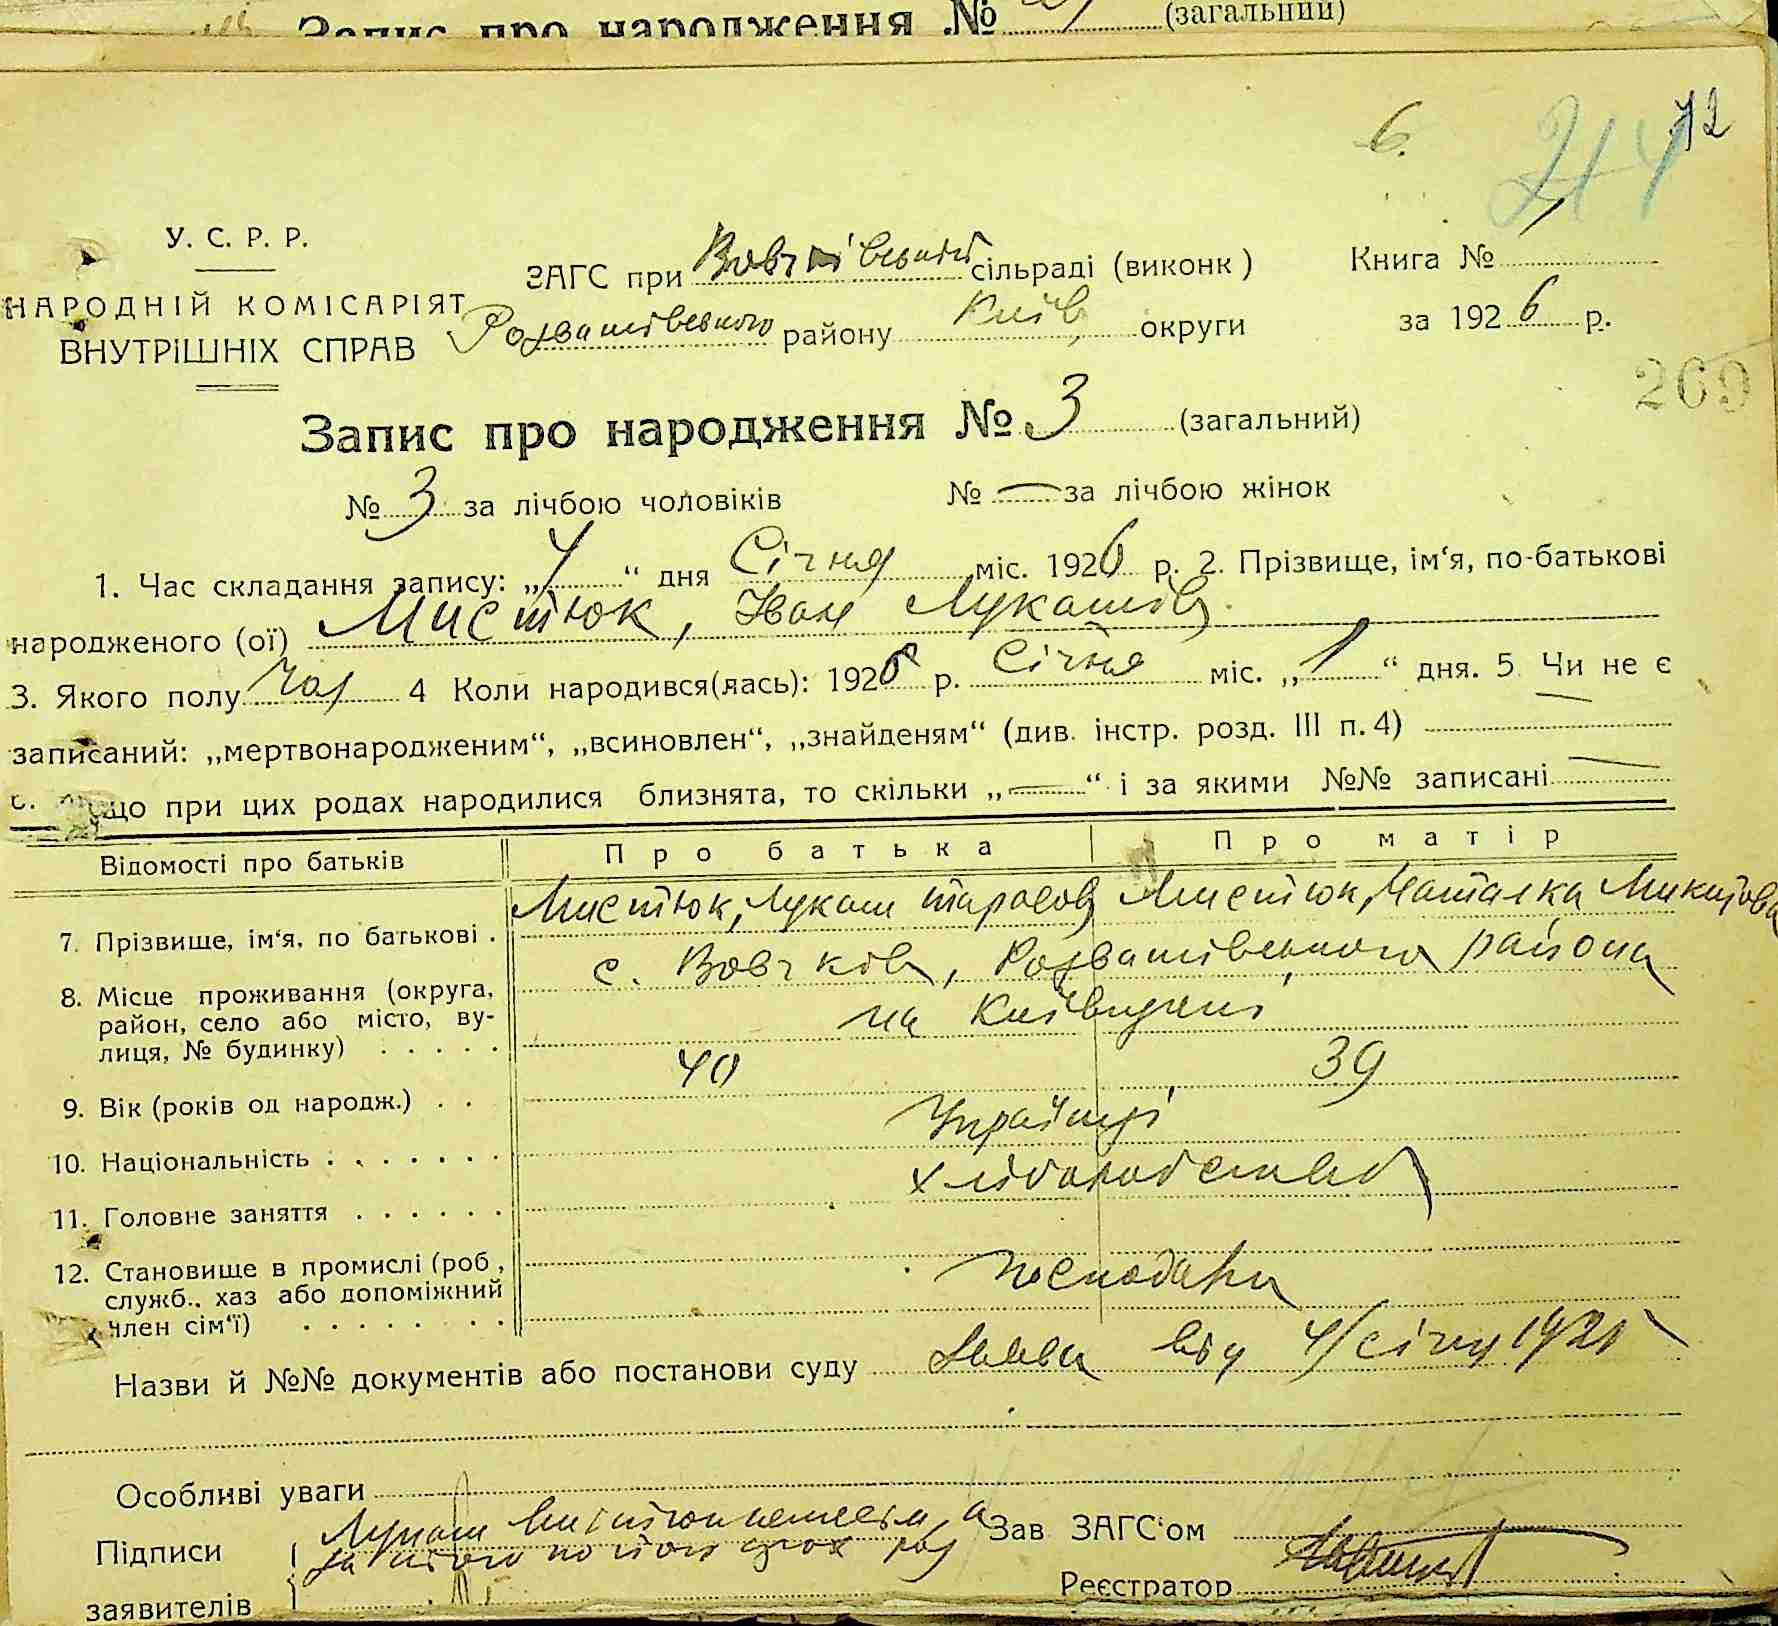 Запис про народження № (загальний)
6.
72
У. С. Р. Р.
НАРОДНІЙ КОМІСАРІЯТ
ВНУТРІШНІХ СПРАВ
ЗАГС при Вовчківській сільраді (виконк) Книга № 1
Розважівського району Київ округи за 1926 р.
269
Запис про народження № 3 (загальний)
№ 3 за лічбою чоловіків № — за лічбою жінок
1. Час складання запису: „4“ дня Січня міс. 1926 р. 2. Прізвище, ім‘я, по-батькові
народженого (ої) Мистюк, Іван Лукашів
3. Якого полу чол 4 Коли народився(лась): 1926 р. Січня міс. „1“ дня. 5 Чи не є
записаний: „мертвонародженим“, „всиновлен“, „знайденям“ (див. інстр. розд. III п. 4) —
що при цих родах народилися близнята, то скільки „—“ і за якими №№ записані —
Відомості про батьків Про батька Про матір
7. Прізвище, ім‘я, по батькові . Мистюк, Лукаш Тарасов Мистюк, Наталка Микитова
8. Місце проживання (округа, с. Вовчків, Розважівського району
район, село або місто, ву- на Київщині
лиця, № будинку) . . . . .
9. Вік (років од народж.) . . 40 39
10. Національність . . . . . . . Українці
11. Головне заняття . . . . . . хліборобство
12. Становище в промислі (роб, Господари
служб., хаз або допоміжний
член сім‘ї) . . . . . . . .
Назви й №№ документів або постанови суду Заява від 4/січня 192
Особливі уваги
Підписи Лукаш Мистюк неписьм, а
за нього по його
заявителів
Зав ЗАГС‘ом
Реєстратор